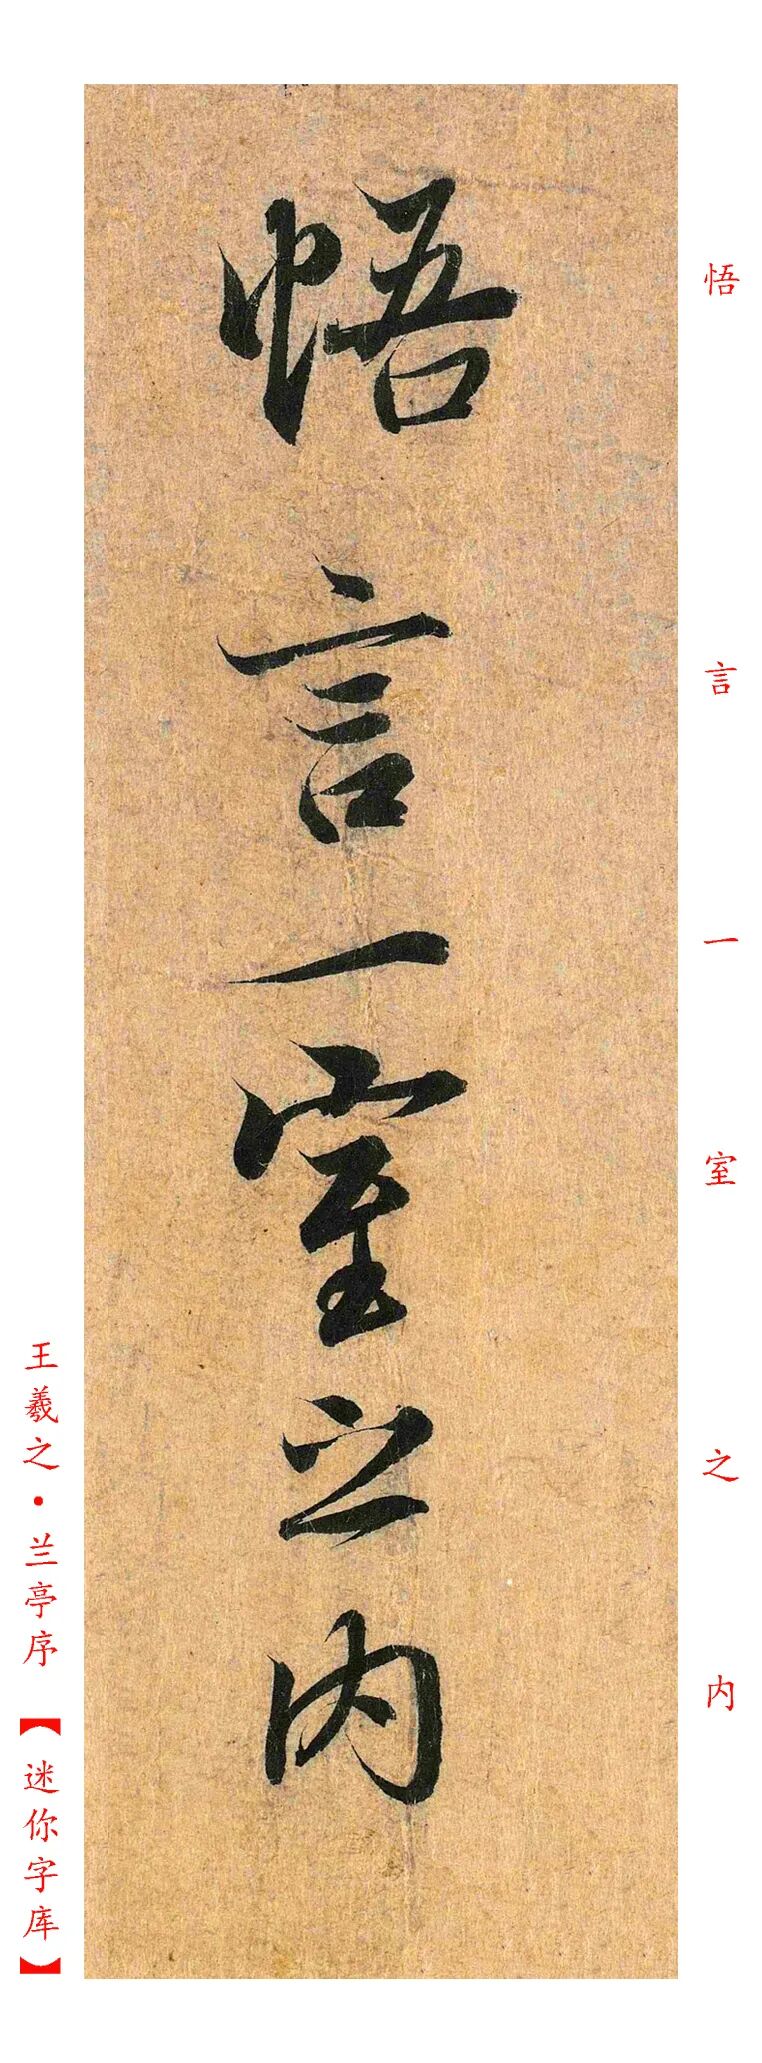 悟言一室之内
悟言一室之内
王羲之·兰亭序【迷你字库】